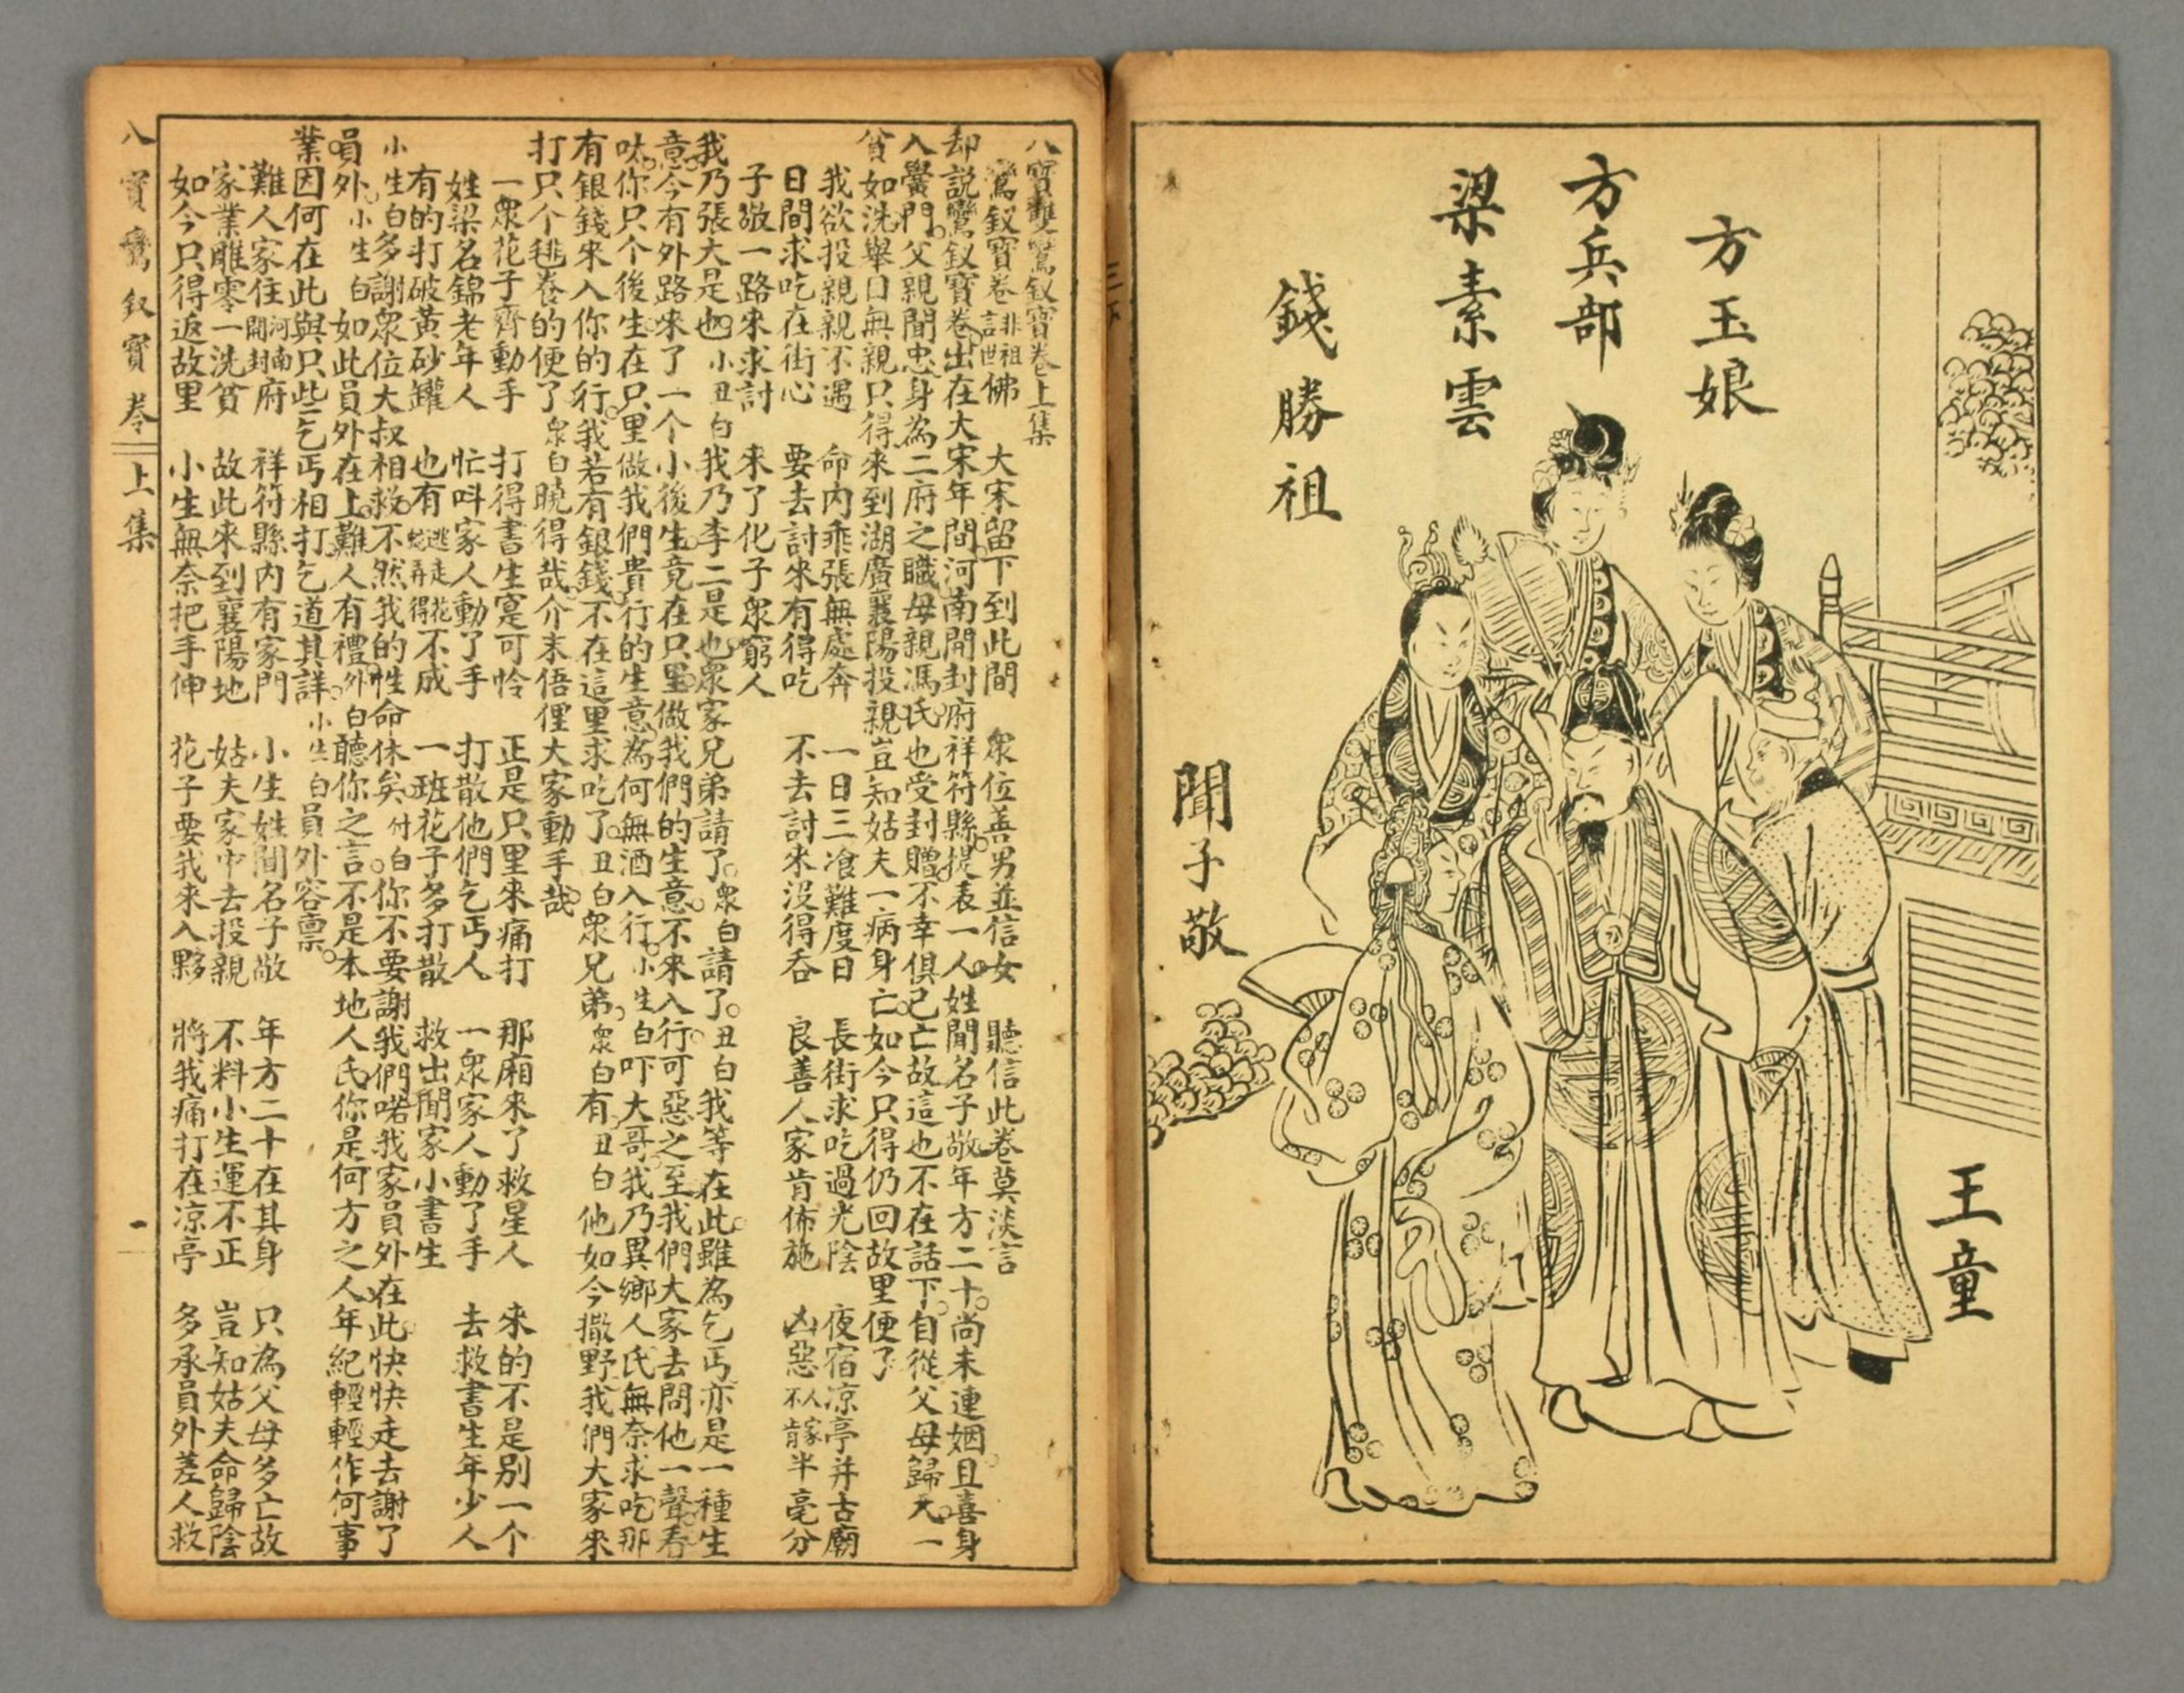 方玉娘
方兵部
梁素雲
錢勝祖
聞子敬
王童
八寶雙鸞釵寶卷上集
鸞釵寶卷非祖佛 大宋留下到此間 衆位善男並信女 聽信此卷莫淡言
却説鸞釵寶卷出在大宋年間河南開封府祥符縣提表一人姓聞名子敬年方二十尚未連姻且喜身
入黌門父親聞忠身為二府之職母親馮氏也受封贈不幸俱已亡故這也不在話下自從父母歸天一
貧如洗舉目無親只得來到湖廣襄陽投親豈知姑夫一病身亡如今只得仍回故里便了
我欲投親親不遇 命内乖張無處奔 一日三飡難度日 長街求吃過光陰 夜宿凉亭并古廟
日間求吃在街心 要去討來有得吃 不去討來没得吞 良善人家肯佈施 凶惡人家不肯半毫分
子敬一路來求討 來了化子衆窮人
我乃張大是也小丑白我乃李二是也衆家兄弟請了衆白請了丑白我等在此雖為乞丐亦是一種生
意今有外路來了一个小後生竟在只里做我們的生意不來入行可惡之至我們大家去問他一聲看
呔你只个後生在只里做我們貴行的生意為何無酒入行小生白吓大哥我乃異鄉人氏無奈求吃那
有銀錢來入你的行我若有銀錢不在這里求吃了丑白衆兄弟衆白有丑白他如今撒野我們大家來
打只个毴養的便了衆白曉得哉介末俉俚大家動手哉
一衆花子齊動手 打得書生寔可怜 正是只里來痛打 那廂來了救星人 來的不是别一个
姓梁名錦老年人 忙呌家人動了手 打散他們乞丐人 一衆家人動了手 去救書生年少人
有的打破黃砂罐 也有逃走花不成 一班花子多打散 救出聞家小書生
小生白多謝衆位大叔相救不然我的性命休矣付白你不要謝我們喏我家員外在此快快走去謝了
員外小生白如此員外在上難人有禮外白聽你之言不是本地人氏你是何方之人年紀輕輕作何事
業因何在此與只些乞丐相打乞道其詳小生白員外容禀
難人家住河南開封府 祥符縣内有家門 小生姓聞名子敬 年方二十在其身 只為父母多亡故
家業雕零一洗貧 故此來到襄陽地 姑夫家中去投親 不料小生運不正 豈知姑夫命歸陰
如今只得返故里 小生無奈把手伸 花子要我來入夥 將我痛打在凉亭 多承員外差人救
八寶鸞釵寶卷 上集 一